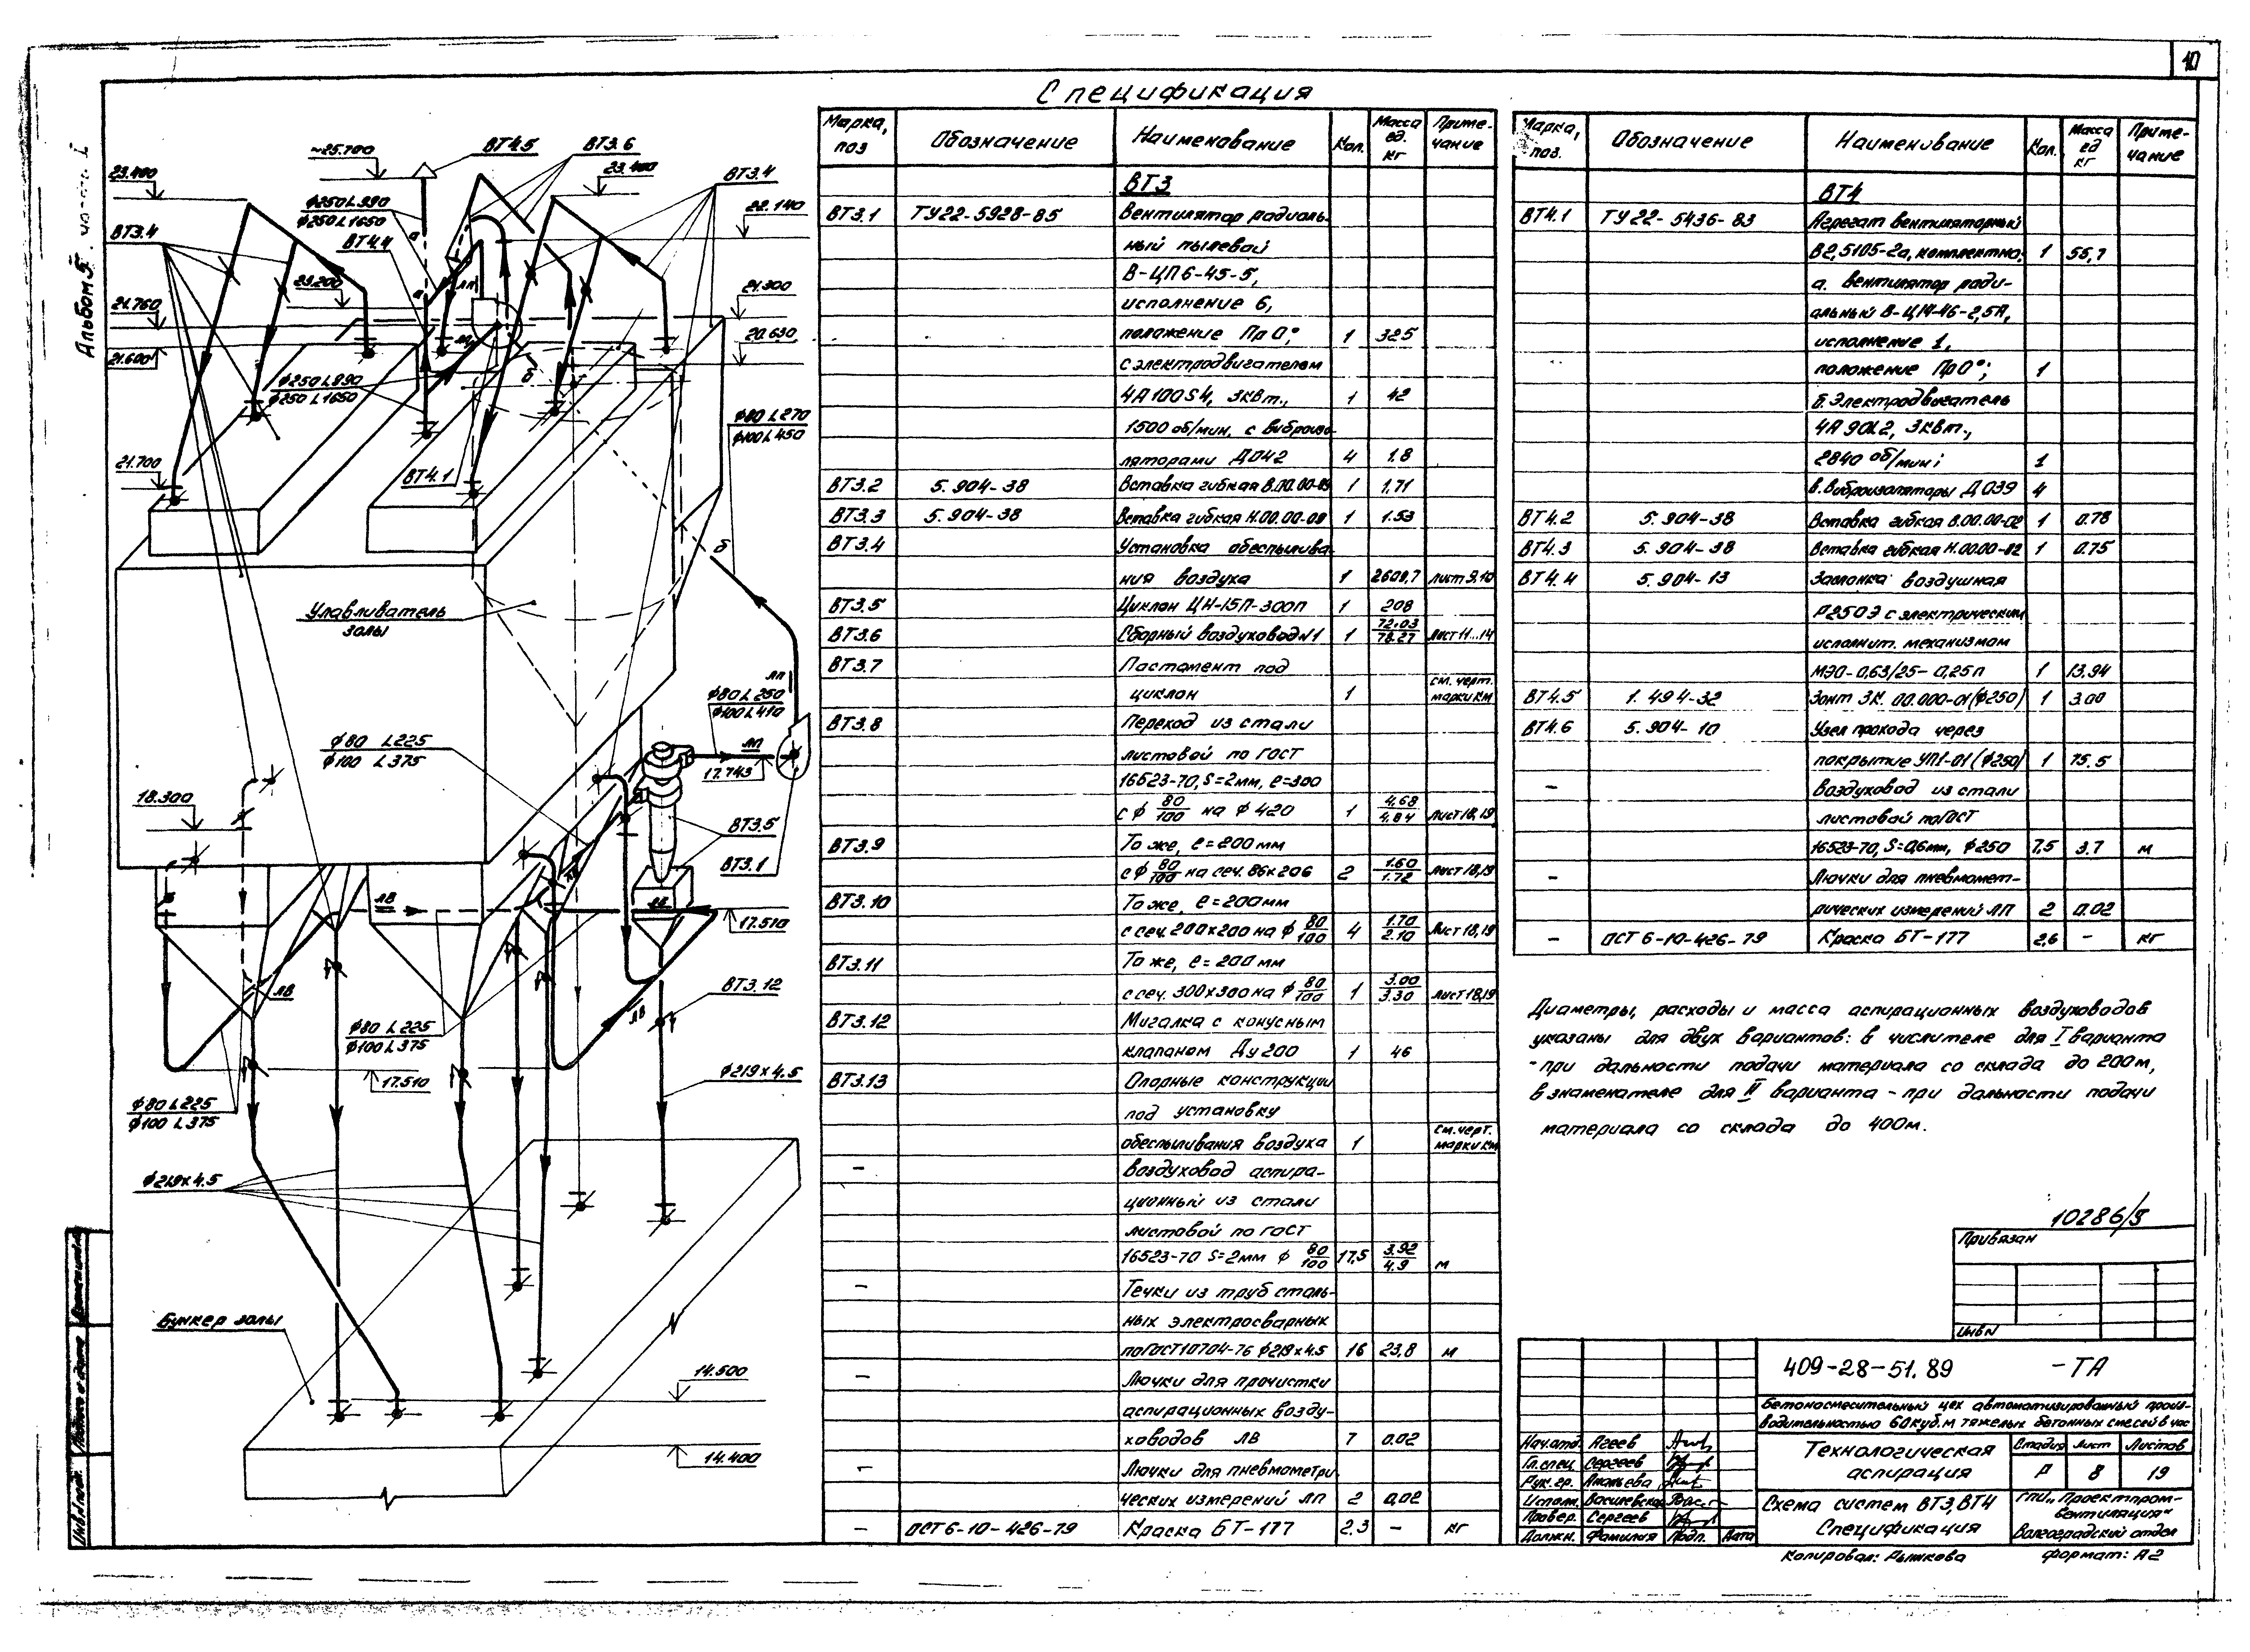 10
Альбом 5
Спецификация
~25.700
ВТ4.5
ВТ3.6
23.400
23.400
ВТ3.4
ф250 L 990
ф250 L 1650
22.140
ВТ3.4
ВТ4.4
а
ЛП
23.200
а
21.300
21.760
20.630
21.600
б
ф250 L 890
ф250 L 1650
г
ф80 L 270
ф100 L 450
21.700
ВТ4.1
б
Улавливатель
золы
ЛП
ф80 L 250
ф100 L 410
ф80 L 225
ф100 L 375
ЛП
17.743
18.300
ВТ3.5
ВТ3.1
ЛВ
ЛВ
17.510
ЛВ
ВТ3.12
ф80 L 225
ф100 L 375
ЛВ
17.510
ф219х4.5
ф80 L 225
ф100 L 375
ф219х4.5
Бункер золы
14.500
14.400
Марка, поз Обозначение Наименование Кол. Масса ед. кг Приме-чание
ВТ3
ВТ3.1 ТУ22-5928-85 Вентилятор радиаль-
ный пылевой
В-ЦП6-45-5,
исполнение 6,
положение Пр 0°, 1 325
с электродвигателем
4А100S4, 3кВт., 1 42
1500 об/мин, с виброизо-
ляторами ДО42 4 1.8
ВТ3.2 5.904-38 Вставка гибкая В.00.00-09 1 1.71
ВТ3.3 5.904-38 Вставка гибкая Н.00.00-09 1 1.53
ВТ3.4 Установка обеспылива-
ния воздуха 1 2609,7 лист 9,10
ВТ3.5 Циклон ЦН-15П-300п 1 208
ВТ3.6 Сборный воздуховод №1 1 72.03/78.27 Лист 11...14
ВТ3.7 Постамент под
циклон 1 см. черт. марки КМ
ВТ3.8 Переход из стали
листовой по ГОСТ
16523-70, S=2мм, ℓ=300
с ф 80/100 на ф 420 1 4.68/4.84 Лист 18,19
ВТ3.9 То же, ℓ=200мм
с ф 80/100 на сеч. 86х206 2 1.60/1.72 Лист 18,19
ВТ3.10 То же, ℓ=200мм
с сеч. 200х200 на ф 80/100 4 1.70/2.10 Лист 18,19
ВТ3.11 То же, ℓ=200мм
с сеч. 300х300 на ф 80/100 1 3.00/3.30 лист 18,19
ВТ3.12 Мигалка с конусным
клапаном Ду 200 1 46
ВТ3.13 Опорные конструкции
под установку
обеспыливания воздуха 1 см. черт. марки КМ
– Воздуховод аспира-
ционный из стали
листовой по ГОСТ
16523-70 S=2мм ф 80/100 17,5 3.92/4.9 м
– Течки из труб сталь-
ных электросварных
по ГОСТ 10704-76 ф219х4.5 16 23,8 м
– Лючки для прочистки
аспирационных возду-
ховодов ЛВ 7 0.02
– Лючки для пневмометри-
ческих измерений ЛП 2 0,02
– ОСТ 6-10-426-79 Краска БТ-177 2,3 – кг
Марка, поз. Обозначение Наименование Кол. Масса ед кг Приме-чание
ВТ4
ВТ4.1 ТУ22-5436-83 Агрегат вентиляторный
В2,5105-2а, комплектно: 1 55,7
а. вентилятор ради-
альный В-Ц14-46-2,5А,
исполнение 1,
положение Пр0°; 1
б. Электродвигатель
4А90L2, 3кВт.,
2840 об/мин; 1
в. Виброизоляторы ДО39 4
ВТ4.2 5.904-38 Вставка гибкая В.00.00-02 1 0.78
ВТ4.3 5.904-38 Вставка гибкая Н.00.00-02 1 0.75
ВТ4.4 5.904-13 Заслонка воздушная
Р250Э с электрическим
исполнит. механизмом
МЭО-0,63/25-0,25п 1 13.94
ВТ4.5 1.494-32 Зонт ЗК.00.000-01(ф250) 1 3.00
ВТ4.6 5.904-10 Узел прохода через
покрытие УП1-01(ф250) 1 75.5
– Воздуховод из стали
листовой по ГОСТ
16523-70, S=0,6мм, ф250 7,5 3.7 м
– Лючки для пневмомет-
рических измерений ЛП 2 0.02
– ОСТ 6-10-426-79 Краска БТ-177 2,6 – кг
Диаметры, расходы и масса аспирационных воздуховодов
указаны для двух вариантов: в числителе для I варианта
- при дальности подачи материала со склада до 200м,
в знаменателе для II варианта - при дальности подачи
материала со склада до 400м.
10286/5
Привязан
Инв N
409-28-51.89 -ТА
Бетоносмесительный цех автоматизированный произ-
водительностью 60куб.м тяжелых бетонных смесей в час
Нач.отд. Агеев
Гл.спец. Сергеев
Рук.гр. Ананьева
Исполн. Васи­левская
Провер. Сергеев
Должн. Фамилия Подп. Дата
Технологическая
аспирация
Стадия Лист Листов
Р 8 19
Схема систем ВТ3, ВТ4
Спецификация
ГПИ „Проектпром-
вентиляция"
Волгоградский отдел
Копировал: Рычкова
Формат: А2
Инв.№ подл.
Подпись и дата